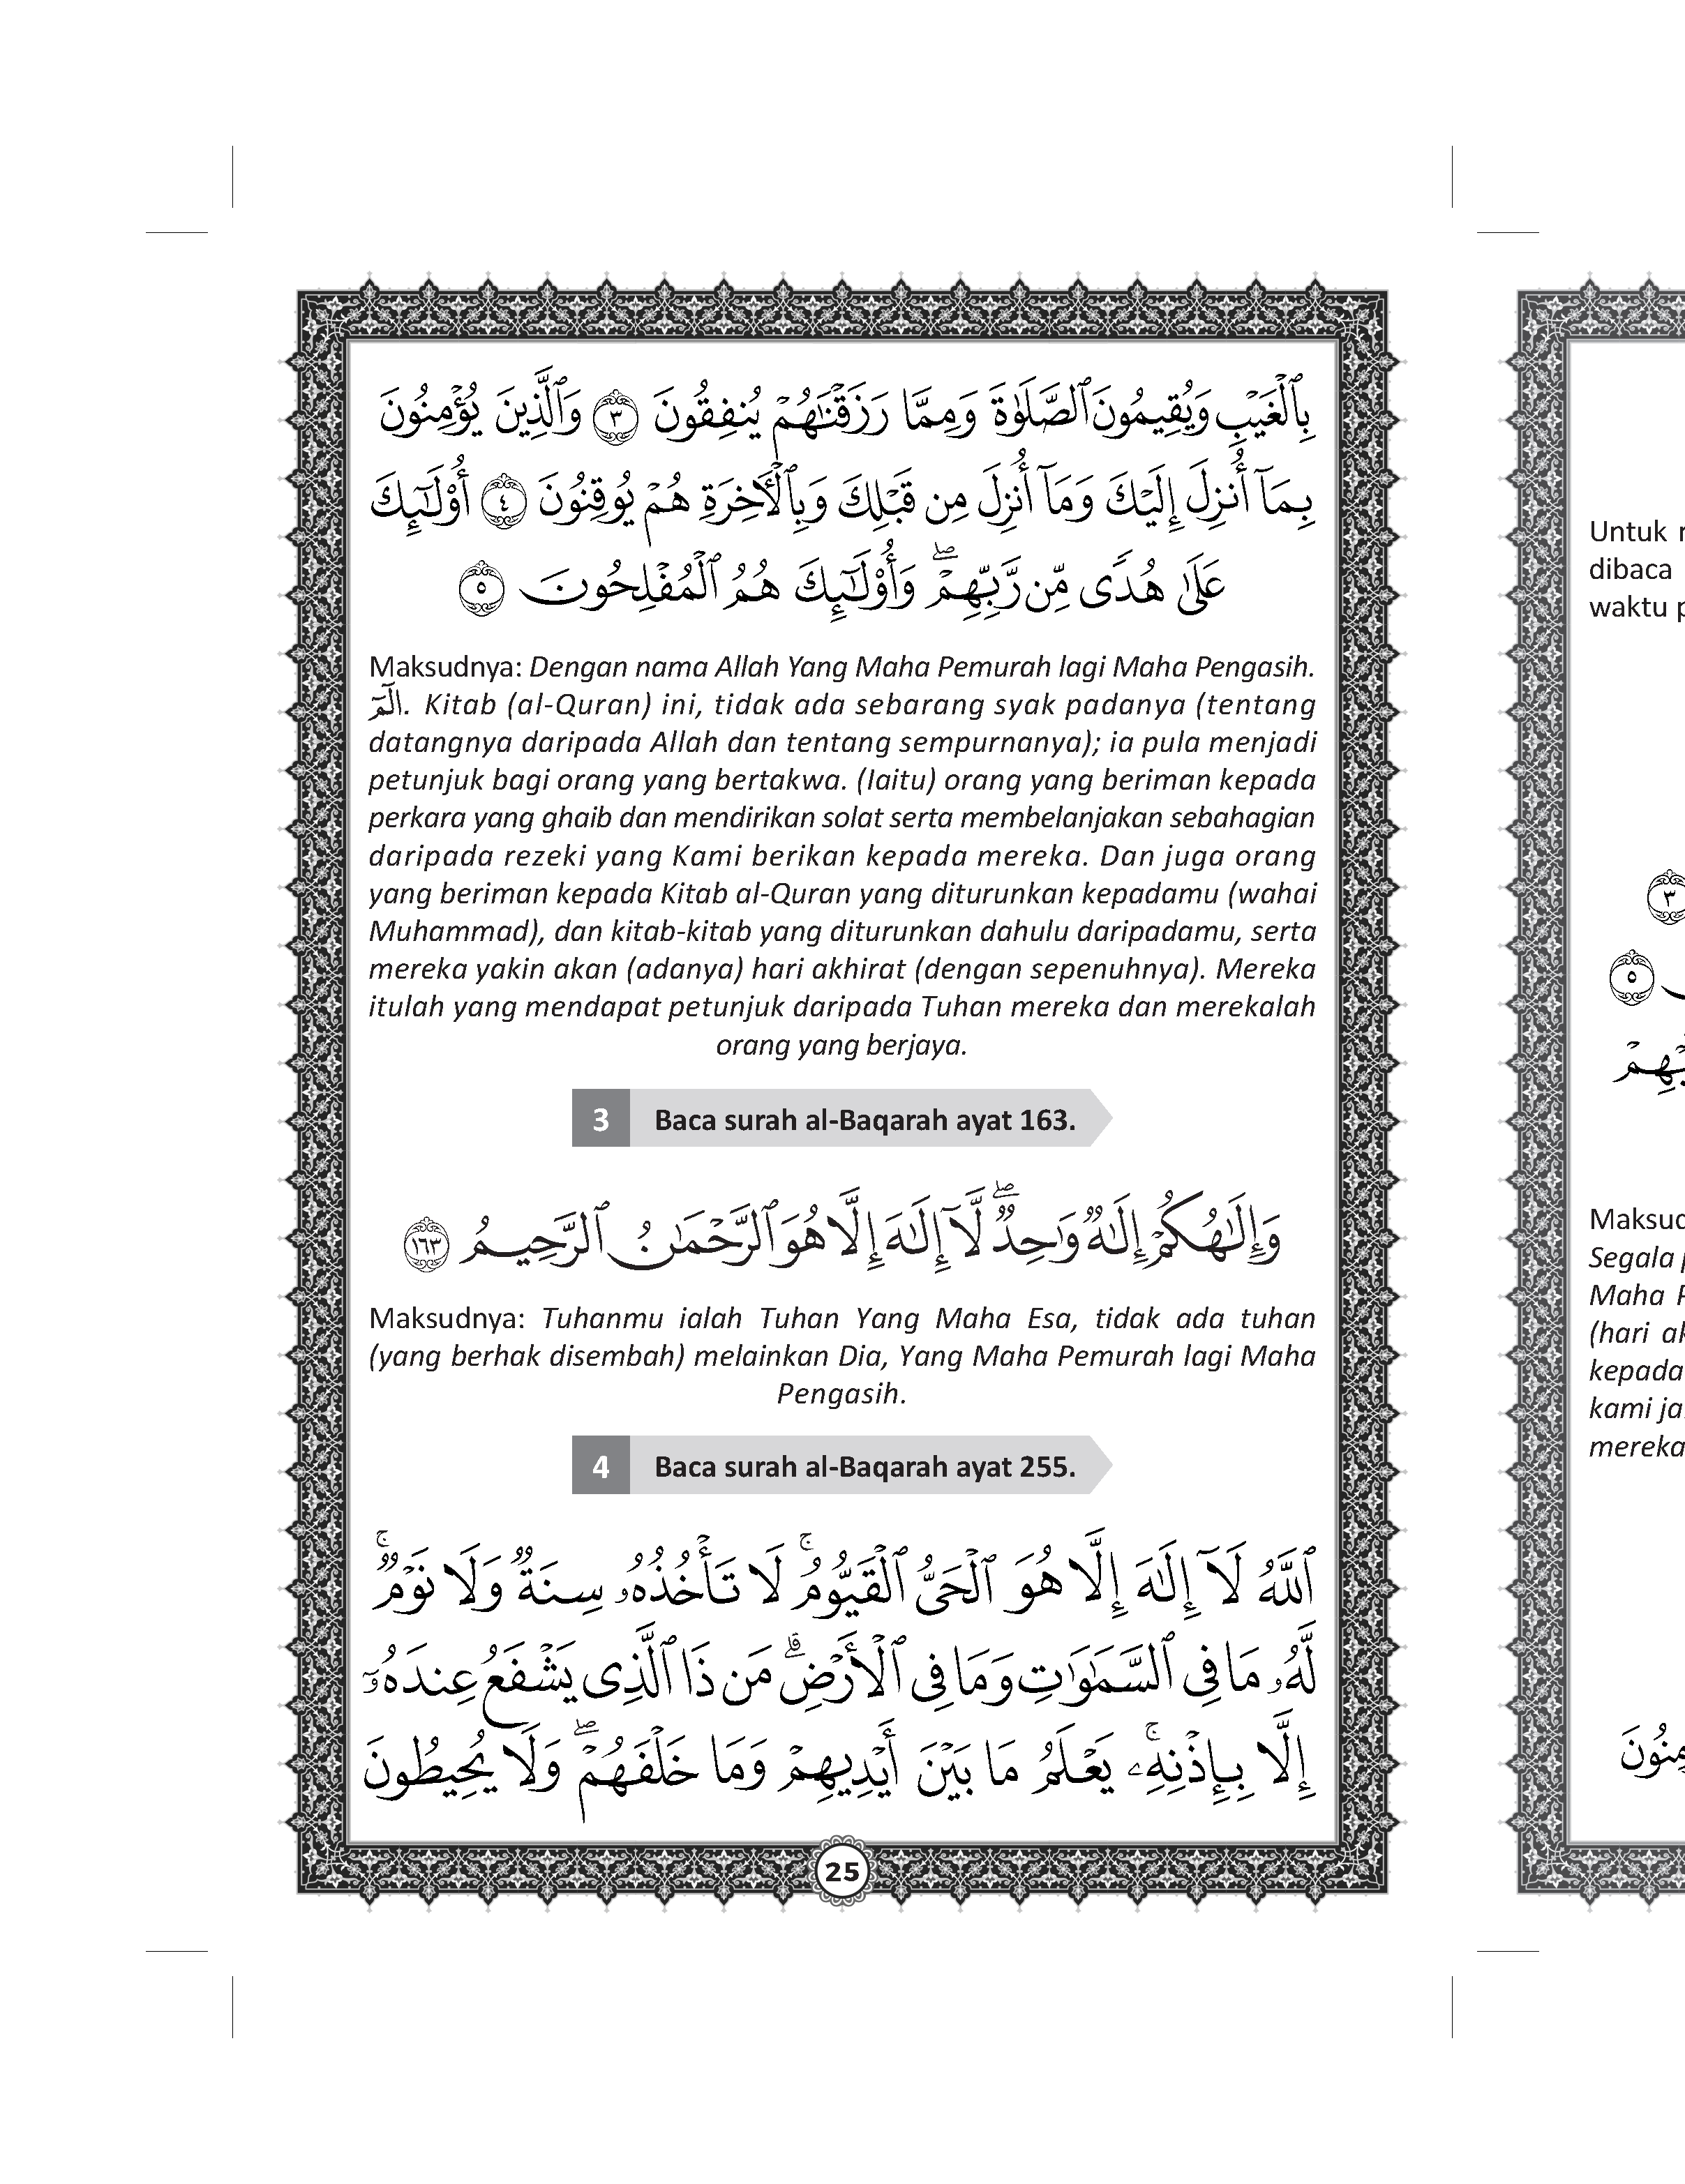 بِٱلْغَيْبِ وَيُقِيمُونَ ٱلصَّلَوٰةَ وَمِمَّا رَزَقْنَـٰهُمْ يُنفِقُونَ ٣ وَٱلَّذِينَ يُؤْمِنُونَ
بِمَآ أُنزِلَ إِلَيْكَ وَمَآ أُنزِلَ مِن قَبْلِكَ وَبِٱلْـَٔاخِرَةِ هُمْ يُوقِنُونَ ٤ أُو۟لَـٰٓئِكَ
عَلَىٰ هُدًى مِّن رَّبِّهِمْ ۖ وَأُو۟لَـٰٓئِكَ هُمُ ٱلْمُفْلِحُونَ ٥
Maksudnya: Dengan nama Allah Yang Maha Pemurah lagi Maha Pengasih.
الٓمٓ. Kitab (al-Quran) ini, tidak ada sebarang syak padanya (tentang
datangnya daripada Allah dan tentang sempurnanya); ia pula menjadi
petunjuk bagi orang yang bertakwa. (Iaitu) orang yang beriman kepada
perkara yang ghaib dan mendirikan solat serta membelanjakan sebahagian
daripada rezeki yang Kami berikan kepada mereka. Dan juga orang
yang beriman kepada Kitab al-Quran yang diturunkan kepadamu (wahai
Muhammad), dan kitab-kitab yang diturunkan dahulu daripadamu, serta
mereka yakin akan (adanya) hari akhirat (dengan sepenuhnya). Mereka
itulah yang mendapat petunjuk daripada Tuhan mereka dan merekalah
orang yang berjaya.
3 Baca surah al-Baqarah ayat 163.
وَإِلَـٰهُكُمْ إِلَـٰهٌ وَٰحِدٌ ۖ لَّآ إِلَـٰهَ إِلَّا هُوَ ٱلرَّحْمَـٰنُ ٱلرَّحِيمُ ١٦٣
Maksudnya: Tuhanmu ialah Tuhan Yang Maha Esa, tidak ada tuhan
(yang berhak disembah) melainkan Dia, Yang Maha Pemurah lagi Maha
Pengasih.
4 Baca surah al-Baqarah ayat 255.
ٱللَّهُ لَآ إِلَـٰهَ إِلَّا هُوَ ٱلْحَىُّ ٱلْقَيُّومُ ۚ لَا تَأْخُذُهُۥ سِنَةٌ وَلَا نَوْمٌ ۚ
لَّهُۥ مَا فِى ٱلسَّمَـٰوَٰتِ وَمَا فِى ٱلْأَرْضِ ۗ مَن ذَا ٱلَّذِى يَشْفَعُ عِندَهُۥٓ
إِلَّا بِإِذْنِهِۦ ۚ يَعْلَمُ مَا بَيْنَ أَيْدِيهِمْ وَمَا خَلْفَهُمْ ۖ وَلَا يُحِيطُونَ
25
Untuk
dibaca
waktu
٣
٥
Segala
Maha
(hari
kepada
kami
mereka